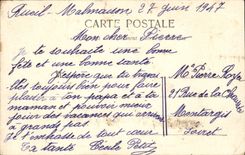 Rueil-Malmaison 27 juin 1947
CARTE POSTALE
Mon cher Pierre
je te souhaite une bonne
fête et une bonne santé.
J'espère que tu
toujours bien pour faire
plaisir à ton papa et à ta
maman et pouvoir mieux
jouir des vacances qui arrivent
à grands pas.
t'embrasse de tout cœur
Ta tante
Mr Pierre
21 Rue de la
Montargis
Loiret